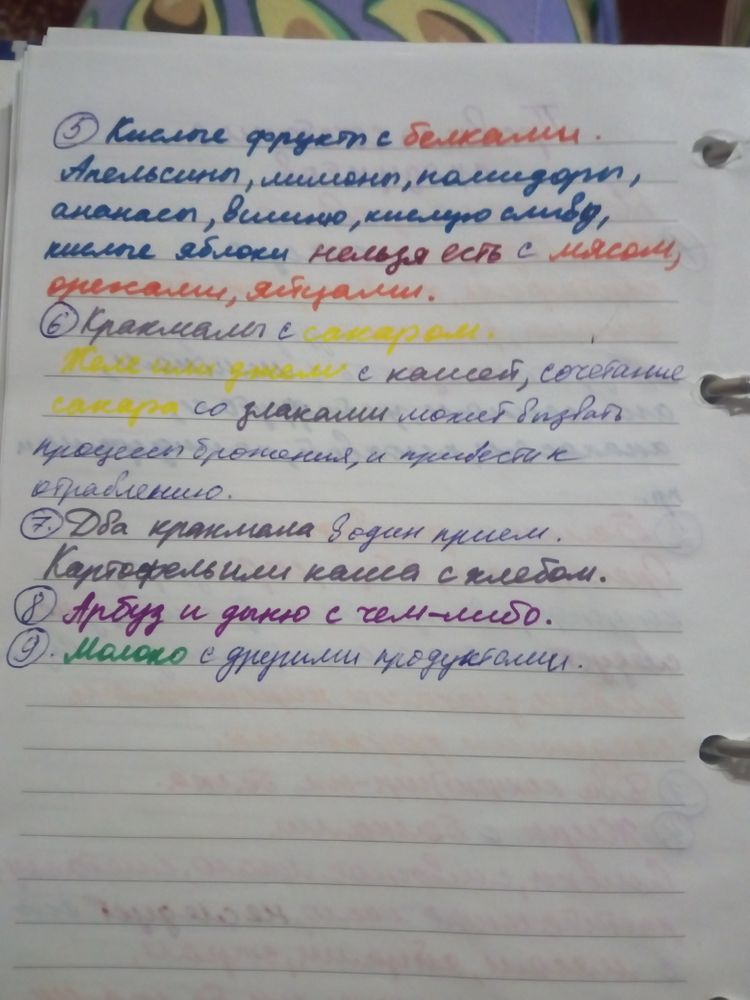 5 Кислые фрукты с белками.
Апельсины, лимоны, помидоры,
ананасы, вишню, кислую сливу,
кислые яблоки нельзя есть с мясом,
орехами, яйцами.
6 Крахмалы с сахаром.
Желе или джем с кашей, сочетание
сахара со злаками может вызвать
процессы брожения, и привести к
отравлению.
7. Два крахмала в один прием.
Картофель или каша с хлебом.
8 Арбуз и дыню с чем-либо.
9. Молоко с другими продуктами.